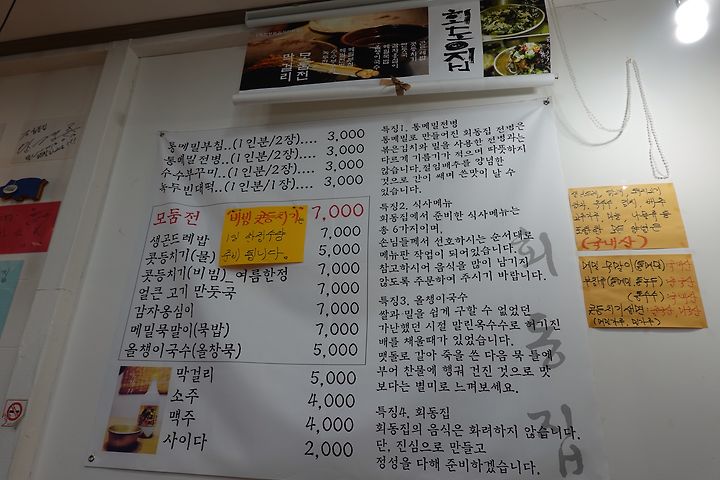 회동집
모둠전
막걸리
통메밀부침..(1인분/2장)....  3,000
통메밀전병..(1인분/2장)....  3,000
수수부꾸미..(1인분/2장)....  3,000
녹두빈대떡..(1인분/1장)....  3,000
모둠전 7,000
생곤드레밥 7,000
콧등치기(물) 5,000
콧등치기(비빔)_여름한정 7,000
얼큰 고기 만둣국 7,000
감자옹심이 7,000
메밀묵말이(묵밥) 7,000
올챙이국수(올창묵) 5,000
비빔 콧등치기는
1일 한정수량
준비 됩니다.
막걸리 5,000
소주 4,000
맥주 4,000
사이다 2,000
특징1. 통메밀전병
통메밀로 만들어진 회동집 전병은
볶은김치와 밀을 사용한 전병과는
다르게 기름기가 적으며 따뜻하지
않습니다.절임배추를 양념한
것으로 간이 쌔며 쓴맛이 날 수
있습니다.
특징2. 식사메뉴
회동집에서 준비한 식사메뉴는
총 6가지이며,
손님들께서 선호하시는 순서대로
메뉴판 작업이 되어있습니다.
참고하시어 음식을 많이 남기지
않도록 주문하여 주시기 바랍니다.
특징3. 올챙이국수
쌀과 밀을 쉽게 구할 수 없었던
가난했던 시절 말린옥수수로 허기진
배를 채울때가 있었습니다.
맷돌로 갈아 죽을 쓴 다음 묵 틀에
부어 찬물에 헹궈 건진 것으로 맛
보다는 별미로 느껴보세요.
특징4. 회동집
회동집의 음식은 화려하지 않습니다.
단, 진심으로 만들고
정성을 다해 준비하겠습니다.
회동집
(국내산)